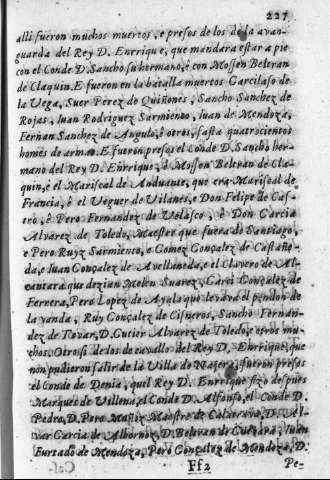 227
alli fueron muchos muertos, e presos de los de la avan-
guarda del Rey D. Enrrique, que mandara estar a pie
con el Conde D. Sancho su hermano, é con Mossen Beltran
de Claquin. E fueron en la batalla muertos Garcilaso de
la Vega, Suer Perez de Quiñones, Sancho Sanchez de
Rojas, Iuan Rodriguez Sarmiento, Iuan de Mendoza,
Fernan Sanchez de Angulo, é otros, fasta quatrocientos
homes de armas. E fueron presos el Conde D. Sancho her-
mano del Rey D. Enrrique, é Mossen Beltran de Cla-
quin, é el Mariscal de Anduanes, que era Mariscal de
Francia, é el Veguer de Vilanes, e Don Felipe de Cas-
tro, é Pero Fernandez de Velasco, é Don Garcia
Alvarez de Toledo, Maestre que fuera de Santiago,
e Pero Ruyz Sarmiento, e Gomez Gonçalez de Castañe-
da, e Iuan Gonçalez de Avellaneda, e el Clavero de Al-
cantara que dezian Melen Suarez, Garci Gonzalez de
Ferrera, Pero Lopez de Ayala que levava el pendon de
la vanda, Ruy Gonçalez de Cisneros, Sancho Fernan-
dez de Tovar, D. Gutier Alvarez de Toledo, e otros mu-
chos. Otrosi de los de cavallo del Rey D. Enrrique que
non pudieron salir de la Villa de Najera, fueron presos
el Conde de Denia, quel Rey D. Enrrique fizo despues
Marques de Villena, el Conde D. Alfonso, el Conde D.
Pedro, D. Pero Mañiz Maestre de Calatrava, D. Al-
var Garcia de Albornoz, D. Beltran de Guevara, Iuan
Furtado de Mendoza, Pero Gonçalez de Mendoza, D.
Ff2
Pe-